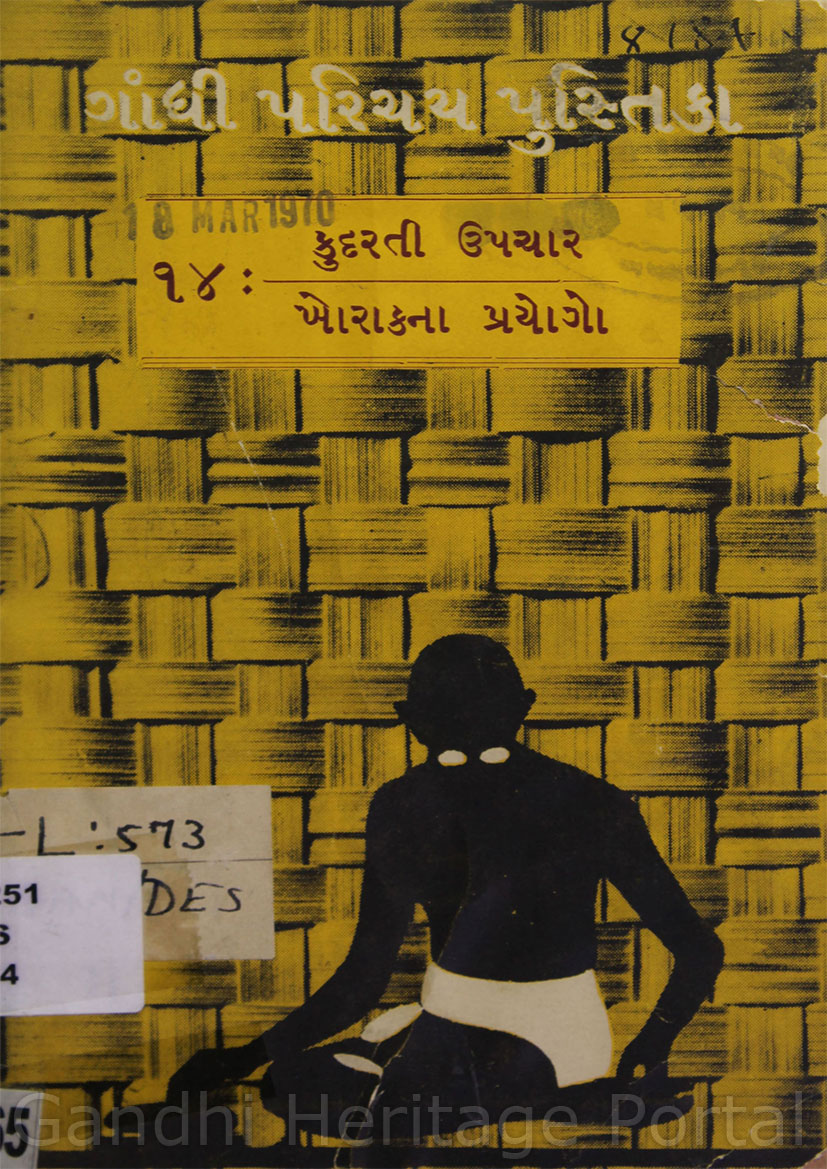 ગાંધી પરિચય પુસ્તિકા
18 MAR 1970
૧૪ :
કુદરતી ઉપચાર
ખોરાકના પ્રયોગો
-L : 573
251
DES
S
4
65
Gandhi Heritage Portal